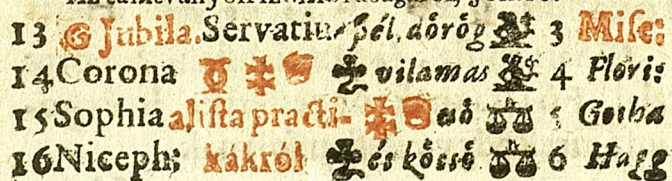 13 G Jubila. Servatius ſzél, dörög 3 Miſe:
14 Corona vilamas 4 Floris
15 Sophia aliſta practi- eső 5 Gotha
16 Niceph; kákról és köſſö 6 Hagg